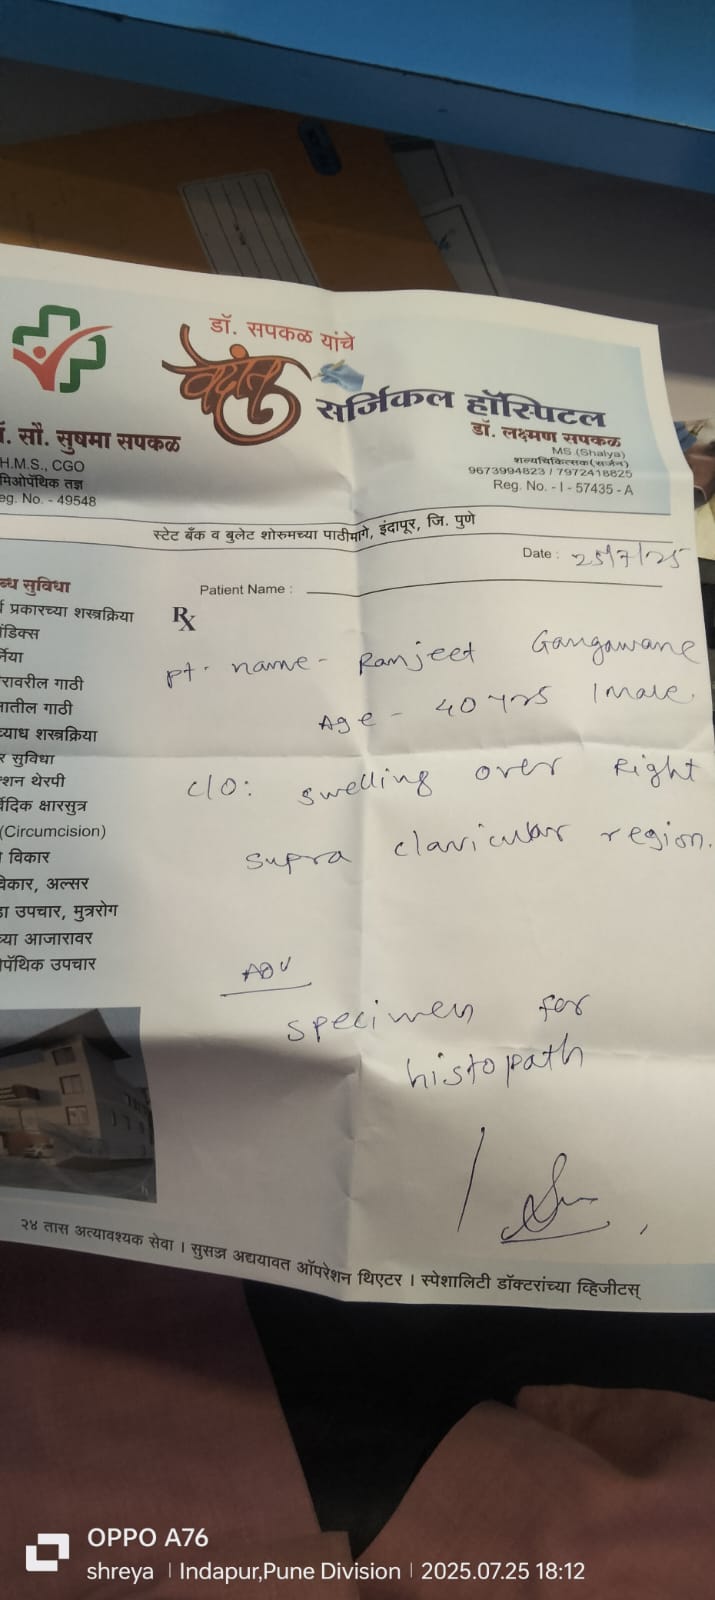 डॉ. सपकळ यांचे
वेदांत
सर्जिकल हॉस्पिटल
डॉ. लक्ष्मण सपकळ
MS (Shalya)
शल्यचिकित्सक(सर्जन)
9673994823 / 7972418825
Reg. No. - I - 57435 - A
. सौ. सुषमा सपकळ
H.M.S., CGO
मिओपॅथिक तज्ञ
eg. No. - 49548
स्टेट बँक व बुलेट शोरुमच्या पाठीमागे, इंदापूर, जि. पुणे
Date : 25/7/25
Patient Name :
Rx
pt. name - Ranjeet Gangawane
Age - 40 yrs / male.
c/o: swelling over Right
supra clavicular region.
Adv
specimen for
histopath
ब्ध सुविधा
प्रकारच्या शस्त्रक्रिया
ंडिक्स
र्निया
रावरील गाठी
ातील गाठी
व्याध शस्त्रक्रिया
र सुविधा
शन थेरपी
र्वेदिक क्षारसुत्र
(Circumcision)
विकार
विकार, अल्सर
ा उपचार, मुत्ररोग
च्या आजारावर
पॅथिक उपचार
२४ तास अत्यावश्यक सेवा । सुसज्ज अद्ययावत ऑपरेशन थिएटर । स्पेशालिटी डॉक्टरांच्या व्हिजीटस्
OPPO A76
shreya | Indapur,Pune Division | 2025.07.25 18:12